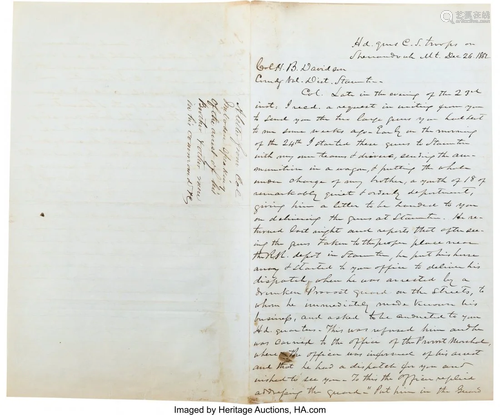 Hd. qrs C. S. troops on
Shenandoah Mt. Dec 26. 1862
Col. H. B. Davidson
Comdg Val. Dist. Staunton
Col. Late in the evening of the 23rd
inst. I recd. a request in writing from you
to send you the two large guns you had sent
to me some weeks ago. Early on the morning
of the 24th I started these guns to Staunton
with my own teams & drivers, sending the am-
munition in a wagon, & putting the whole
under charge of my brother, a youth of 18 of
remarkably quiet & orderly deportment,
giving him a letter to be handed to you
on delivering the guns at Staunton. He re-
turned last night and reports that after see-
ing the guns taken to the proper place near
the R.R. depot in Staunton, he put his horse
away & started to your office to deliver his
dispatch, when he was arrested by a
drunken Provost guard on the streets, to
whom he immediately made known his
business, and asked to be conducted to your
Hd. quarters. This was refused him and he
was carried to the office of the Provost Marshal,
where the officer was informed of his arrest
and that he had a dispatch for you and
wished to see you. To this the officer replied
addressing the guard "Put him in the Guard
Letter from Col.
of the arrest of his
Brother &
Imaged by Heritage Auctions, HA.com